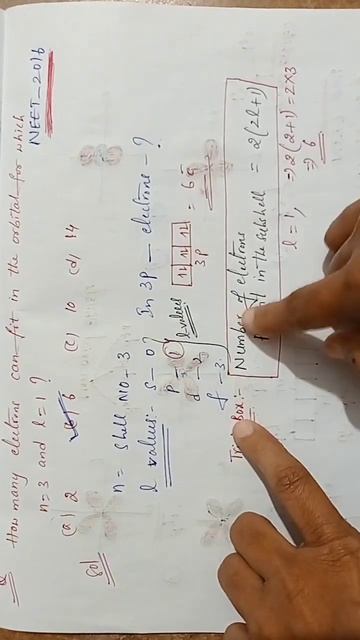 Q How many electrons can fit in the orbital for which
n=3 and l=1 ?
NEET_2016
(a) 2 (b) 6 (c) 10 (d) 14
Sol
n = Shell NO - 3
l values:- s - 0 ? In 3P - electrons - ?
P - 1 l values
d - 2
f - 3.
3P = 6 e⁻
Box:-
Number of electrons
in the subshell = 2(2l+1)
l = 1, ⇒ 2(2+1) = 2×3
⇒ 6